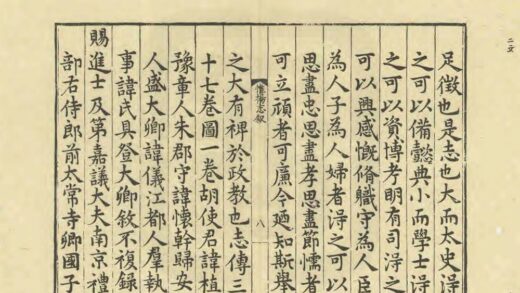 足徵也是志也大而太史淂
之可以備懿典小而學士淂
之可以資博考明有司淂之
可以興感慨脩職守為人臣
為人子為人婦者淂之可以
思盡忠思盡孝思盡節懦者
可立頑者可廉今廼知斯舉
惟揚志敘
八
之大有裨於政教也志傳三
十七卷圖一卷胡使君諱植
豫章人朱郡守諱懷幹歸安
人盛大卿諱儀江都人羣執
事諱氏具登大卿敘不復録
賜進士及第嘉議大夫南京禮
部右侍郎前太常寺卿國子